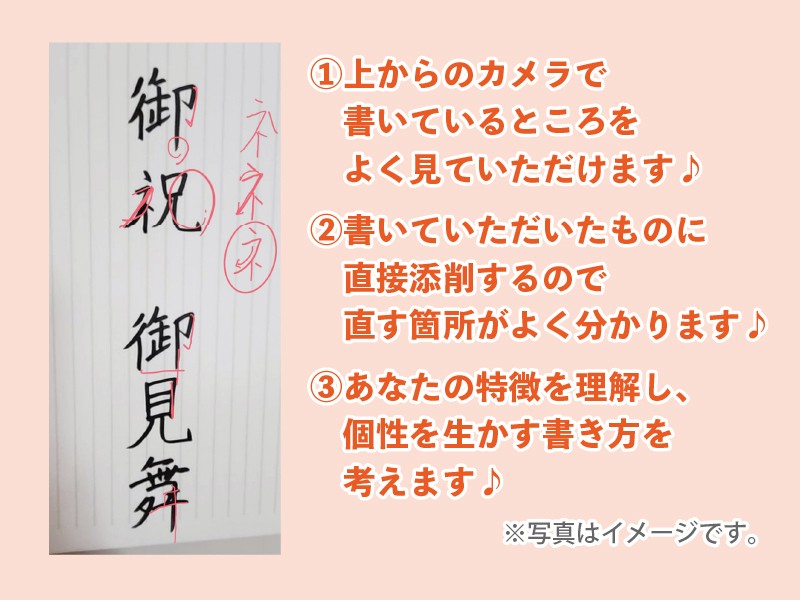 御祝
御見舞
ネ
ネ
ネ
①上からのカメラで
書いているところを
よく見ていただけます♪
②書いていただいたものに
直接添削するので
直す箇所がよく分かります♪
③あなたの特徴を理解し、
個性を生かす書き方を
考えます♪
※写真はイメージです。